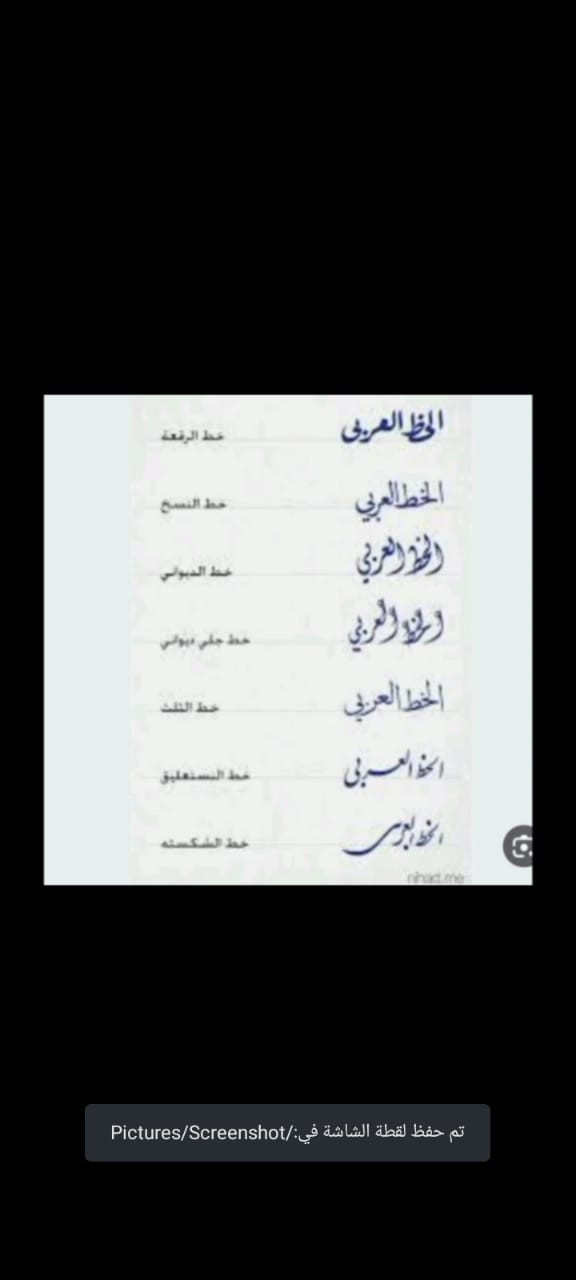 الخط العربي خط الرقعة
الخط العربي خط النسخ
الخط العربي خط الديواني
الخط العربي خط جلي ديواني
الخط العربي خط الثلث
الخط العربي خط النستعليق
الخط العربي خط الشكسته
nihad.me
تم حفظ لقطة الشاشة في:/Pictures/Screenshot